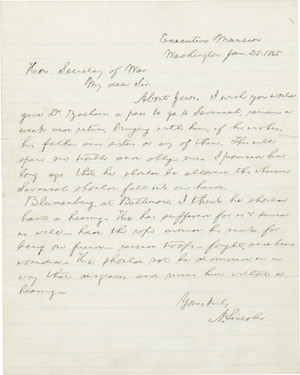 Executive Mansion
Washington Jan. 25. 1865.
Hon. Secretary of War.
My dear Sir.
About Jews. I wish you would
give Dr. Zacharie a pass to go to Savannah, remain a
week and return, bringing with him, if he wishes,
his father and sisters or any of them. This will
spare me trouble and oblige me. I promised him
long ago that he should be allowed this whenever
Savannah should fall into our hands.
Blumenberg, at Baltimore, I think he should
have a hearing. He has suffered for us & served
us well—had the rope around his neck for
being our friend—raised troops—fought, and been
wounded. He should not be dismissed in a
way that disgraces and ruins him without a
hearing.
Yours truly
A. Lincoln